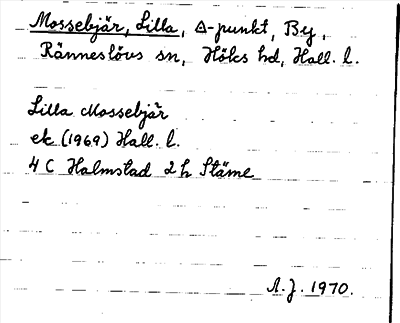 Mossebjär, Lilla, Δ-punkt, By,
Ränneslövs sn, Höks hd, Hall. l.
Lilla Mossebjär
ek (1969) Hall. l.
4 C Halmstad 2 h Stäme
A.J. 1970.